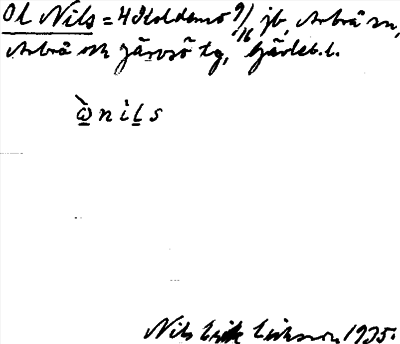 Ol Nils = 4 Holdamo 9/16 jb, Arbrå sn,
Arbrå och Järvsö tg, Gävleb. l.
ὼnils
Nils Erik Eriksson 1935.